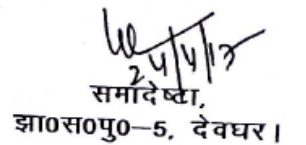 24/4/13
समादेष्टा,
झा०स०पु०-5, देवघर।